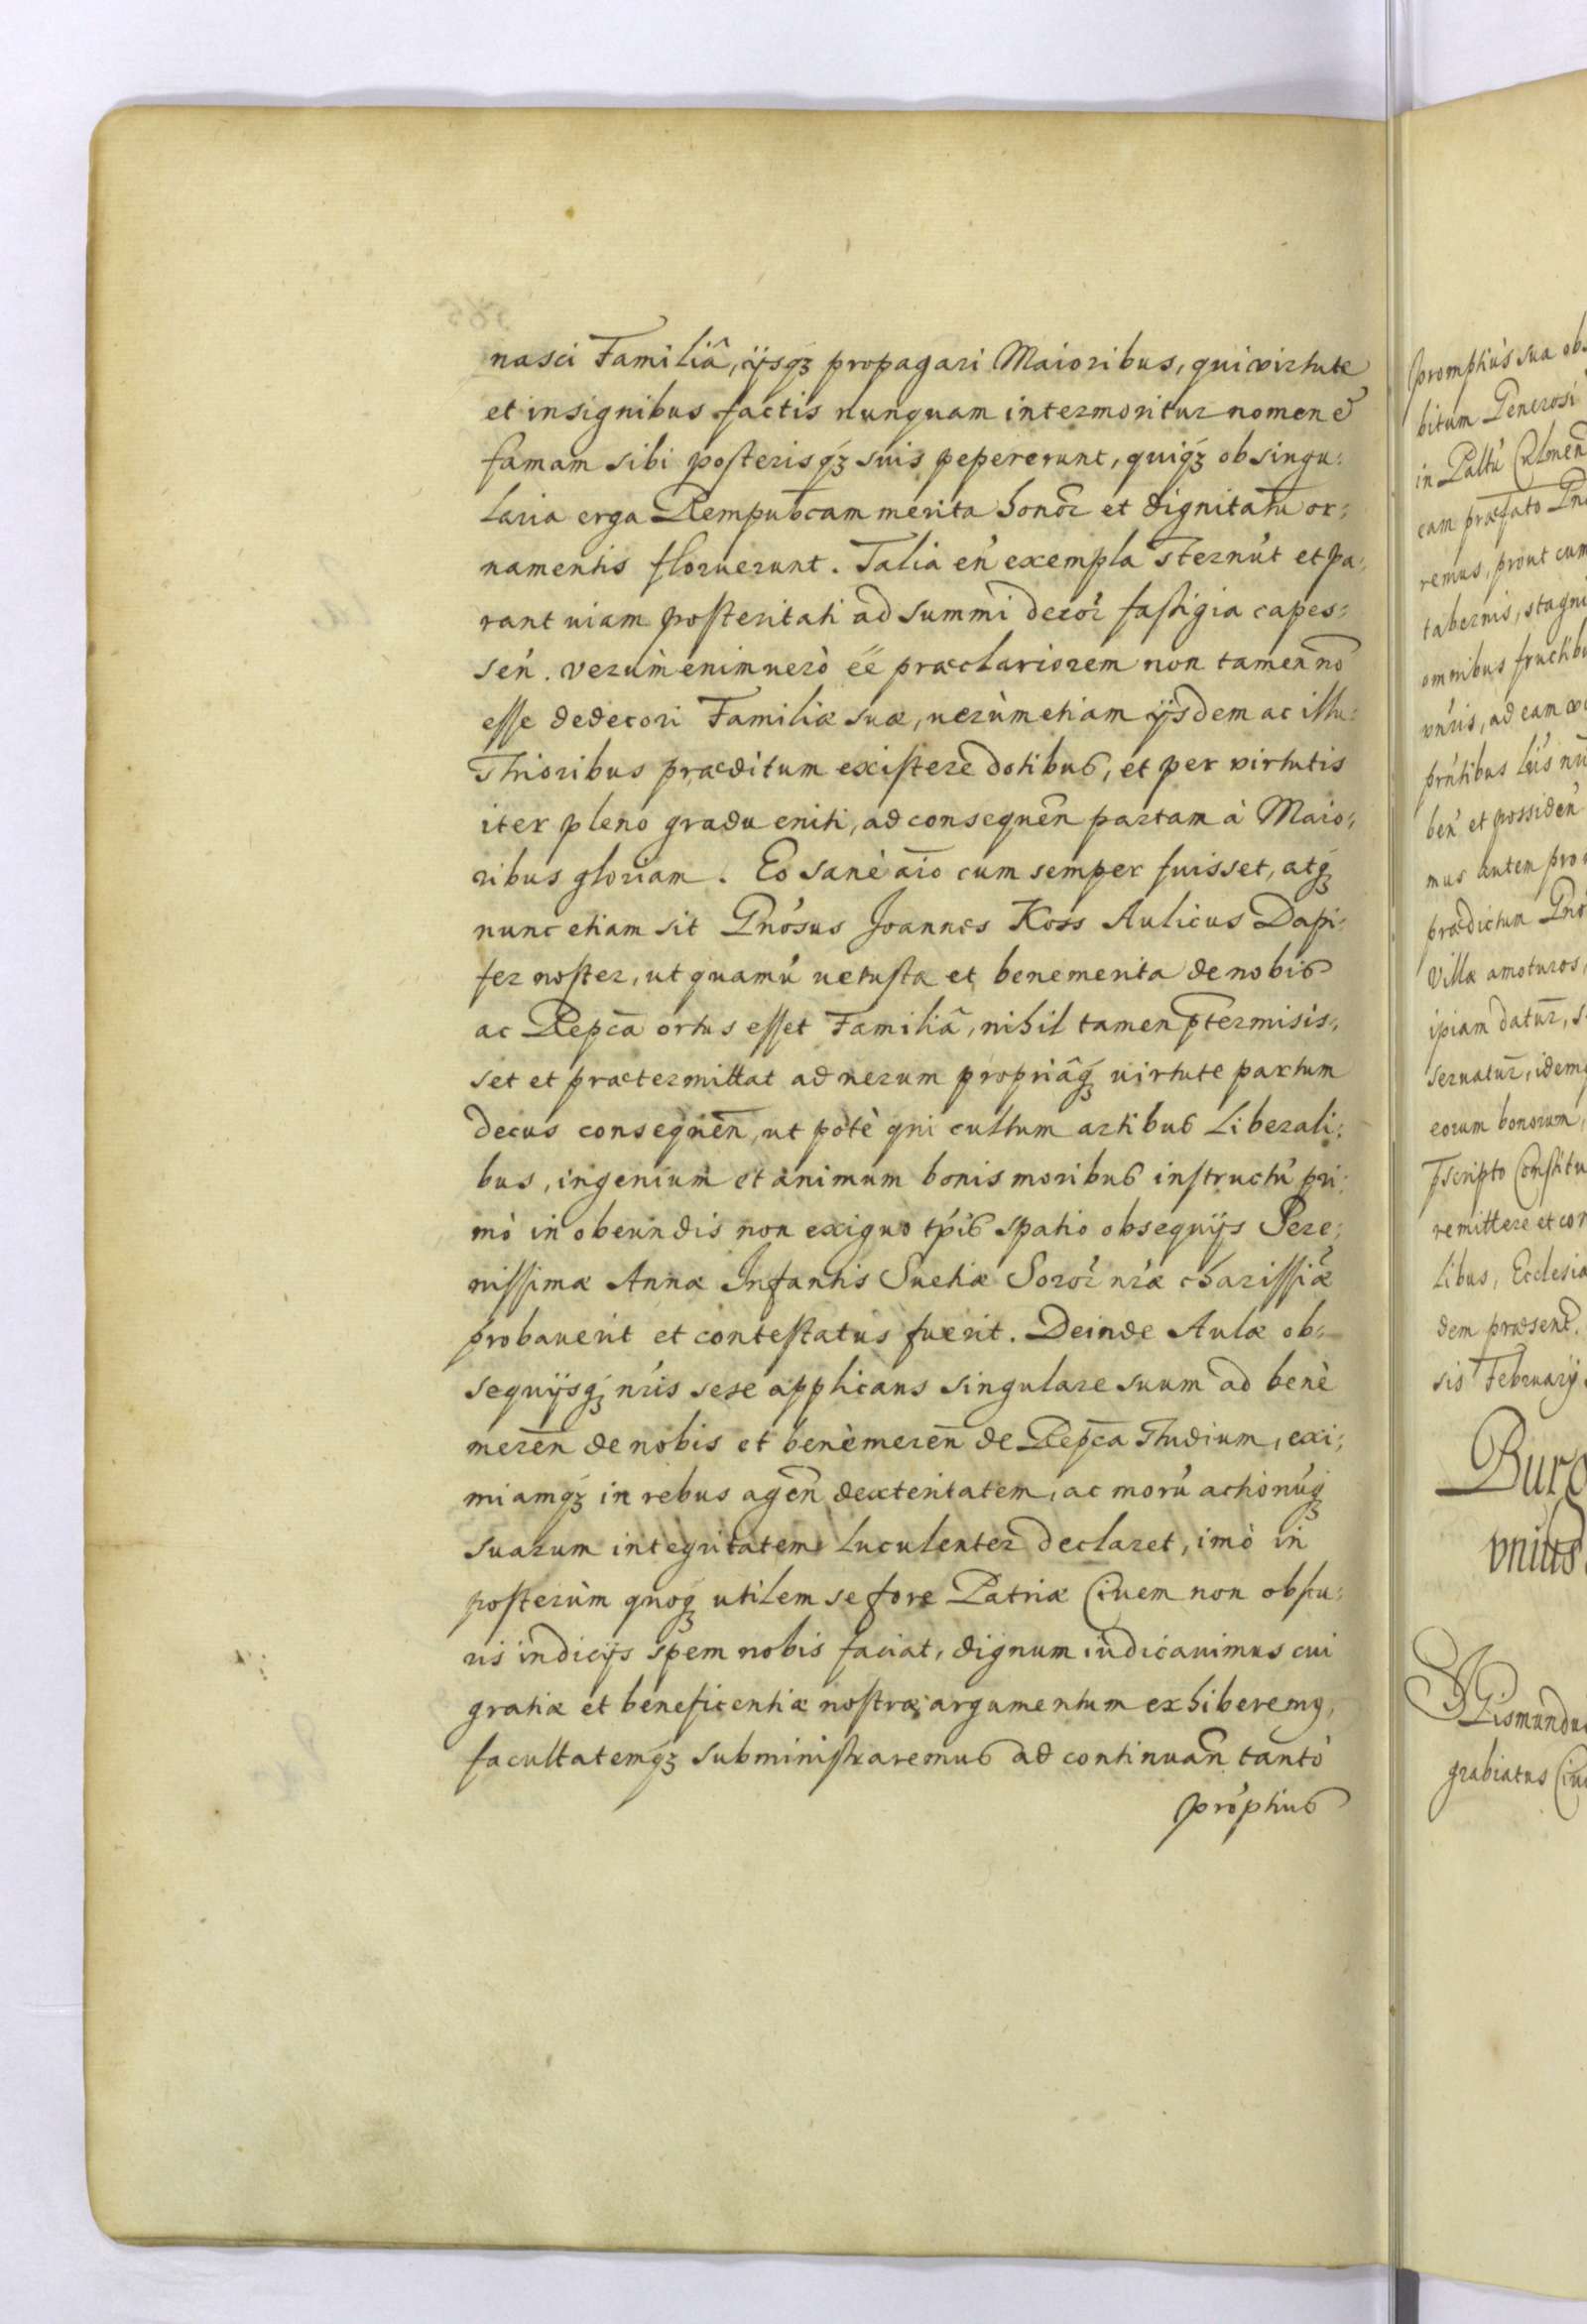 nasci Familiâ, ijsqʒ propagari Maioribus, qui virtute
et insignibus factis nunquam intermoritur nomen &
famam sibi posterisqʒ suis pepererunt, quiqʒ ob singu:
laria erga Rempubcam merita honor̃ et dignitatũ or:
namentis floruerunt. Talia eñ exempla sternũt et pa:
rant uiam posteritati ad summi decor̃ fastigia capes:
señ. verùm enimuerò ẽẽ praeclariorem non tamen nõ
esse dedecori Familiæ suæ, uerùm etiam ijsdem ac illu:
strioribus præditum existere dotibus, et per virtutis
iter pleno gradu eniti, ad consequeñ partam à Maio:
ribus gloriam. Eo sanè aĩo cum semper fuisset, atqʒ
nunc etiam sit Gñosus Joannes Koss Aulicus Dapi:
fer noster, ut quamũ uetusta et benemerita de nobis
ac Repca ortus esset Familiâ, nihil tamen ꝑtermisis:
set et praetermittat ad uerum propriâqʒ uirtute partum
decus consequeñ, ut potè qui cultum artibus liberali:
bus, ingenium et animum bonis moribus instructũ pri:
mò in obeundis non exiguo tp̃is spatio obsequijs Sere:
nissimæ Annæ Infantis Suetiæ Soror̃ nr̃æ charissĩæ
probauerit et contestatus fuerit. Deinde Aulæ ob:
sequijsqʒ nr̃is sese applicans singulare suum ad benè
mereñ de nobis et benèmereñ de Repca studium, exi:
miamqʒ in rebus ageñ dexteritatem, ac morũ actionũqʒ
suarum integritatem luculenter declaret, imò in
posterùm quoqʒ utilem se fore Patriæ Ciuem non obscu:
ris indicijs spem nobis faciat, dignum iudicauimus cui
gratiæ et beneficentiæ nostræ argumentum exhiberemꝰ,
facultatemqʒ subministraremus ad continuañ tantò
prõptius
promptius sua ob
bitum Generosi
in Paltũ Culmeñ
eam praefato
remus, prout cum
tabernis, stagni
omnibus fructib
ad eam
beñ et possideñ
mus autem pro
prædictum
Villæ amoturos,
ipiam datur̃,
seruatur̃, idemqʒ
eorum bonorum,
remittere et con
libus, Ecclesia
dem præsent.
sis February
Burg
grabiatus